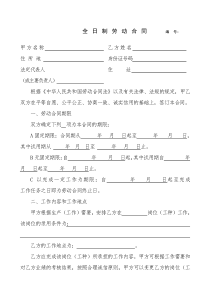 全 日 制 劳 动 合 同 编 号:
甲 方 名 称 乙 方 姓 名
住 所 地 身份证号码
法定代表人 住 址
(或主要负责人)
根据《中华人民共和国劳动合同法》以及有关法律、法规的规定, 甲乙
双方在平等自愿、公平公正、协商一致、诚实信用的基础上, 签订本合同。
一、劳动合同期限
双方确定下列 项方式的合同期限:
A 固定期限: 合同期从 年 月 日起至 年 月 日,
其中试用期从 年 月 日起至 年 月 日止。
B 无固定期限: 自 年 月 日起, 其中试用期从 年 月
日起至 年 月 日止。
C 以完成一定工作为期限: 自 年 月 日起至完成
工作任务之日即为劳动合同终止日。
二、工作内容和工作地点
甲方根据生产 (工作) 需要, 安排乙方在 岗位 (工种) 工作,
该岗位的作业条件为
乙方的工作地点为:
乙方应完成该岗位 (工种) 所花担的工作内容。甲方可根据工作需要和
对乙方业绩的考核结果, 按照合理诚信原则, 甲方可以变更乙方的岗位 (工